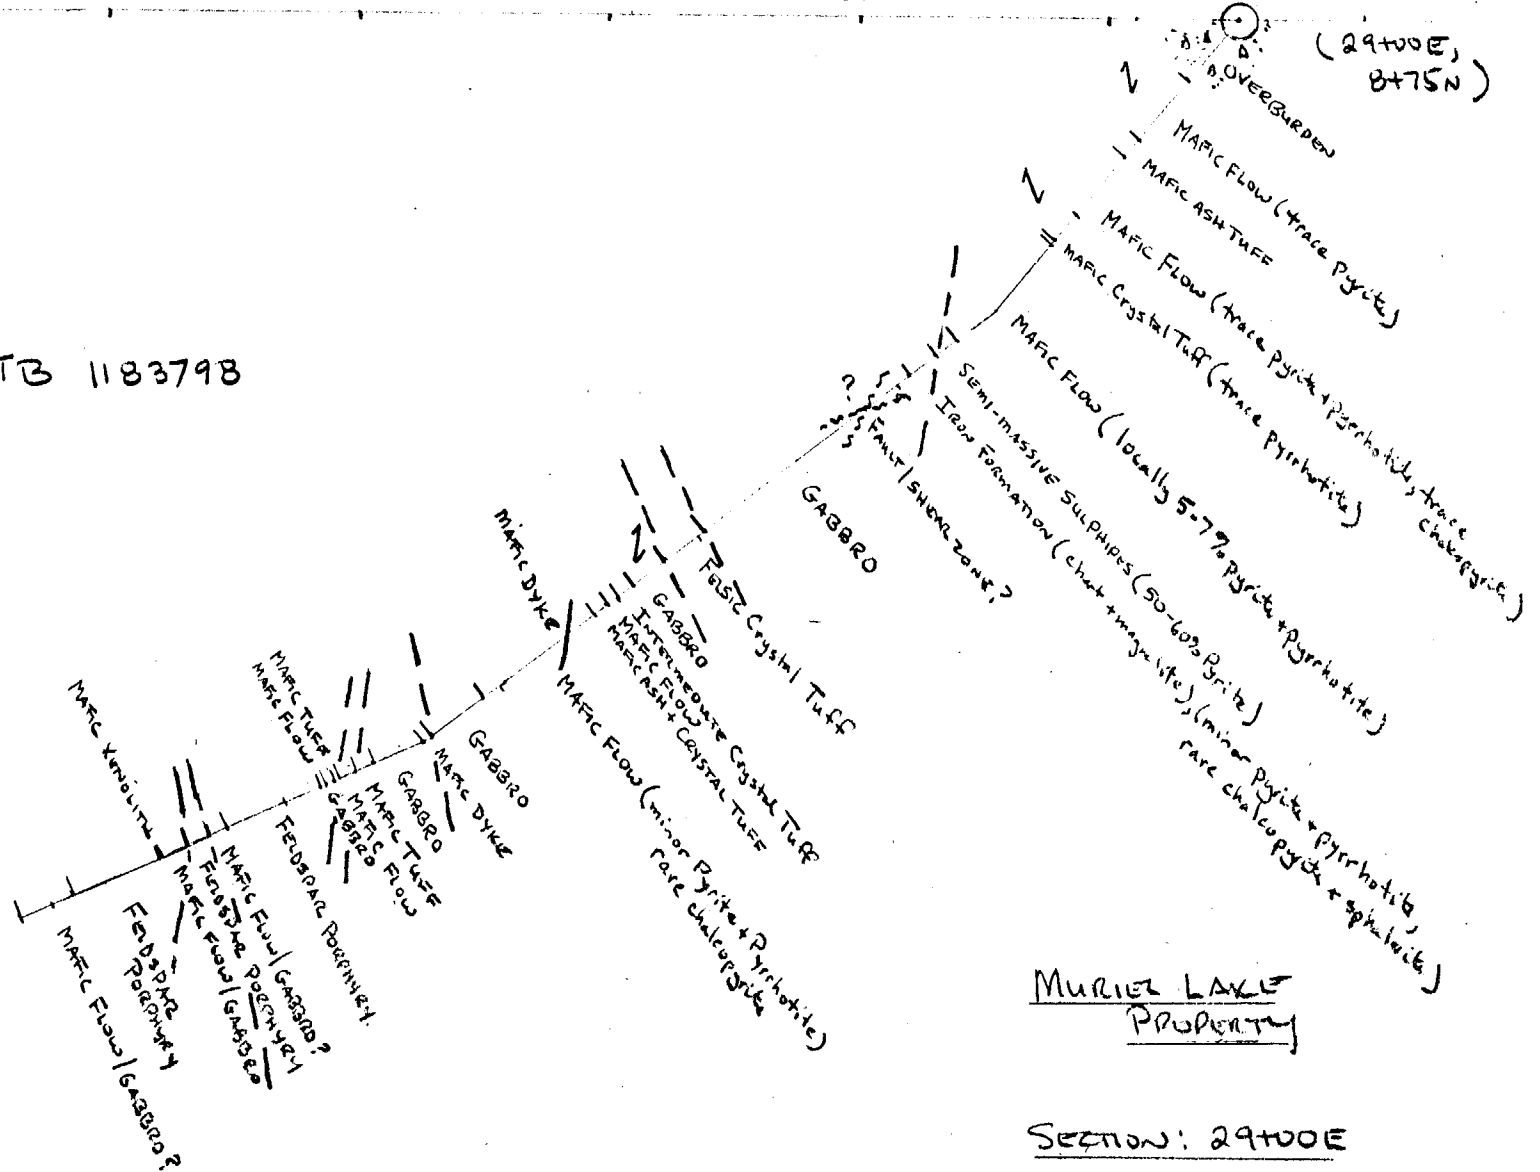 (29+00E,
8+75N)
OVERBURDEN
MAFIC FLOW (trace Pyrite)
MAFIC ASH TUFF
MAFIC FLOW (trace pyrite + pyrrhotite, trace
chalcopyrite)
MAFIC Crystal Tuff (trace pyrrhotite)
MAFIC FLOW (locally 5-7% pyrite + Pyrrhotite)
TB 1183798
SEMI-MASSIVE SULPHIDES (50-60% Pyrite)
IRON FORMATION (chert + magnetite), (minor pyrite + pyrrhotite,
rare chalcopyrite + sphalerite)
?
FAULT/SHEAR ZONE?
GABBRO
FELSIC Crystal Tuff
GABBRO
INTERMEDIATE Crystal Tuff
MAFIC FLOW
MAFIC ASH + CRYSTAL TUFF
MAFIC DYKE
MAFIC FLOW (minor Pyrite + Pyrrhotite)
rare chalcopyrite
GABBRO
MAFIC DYKE
GABBRO
MAFIC TUFF
MAFIC FLOW
GABBRO
MAFIC TUFF
MAFIC FLOW
FELDSPAR PORPHYRY.
MAFIC FLOW/GABBRO?
FELDSPAR PORPHYRY
MAFIC FLOW/GABBRO
MAFIC XENOLITH
FELDSPAR
PORPHYRY
MAFIC FLOW/GABBRO?
MURIEL LAKE
PROPERTY
SECTION: 29+00E